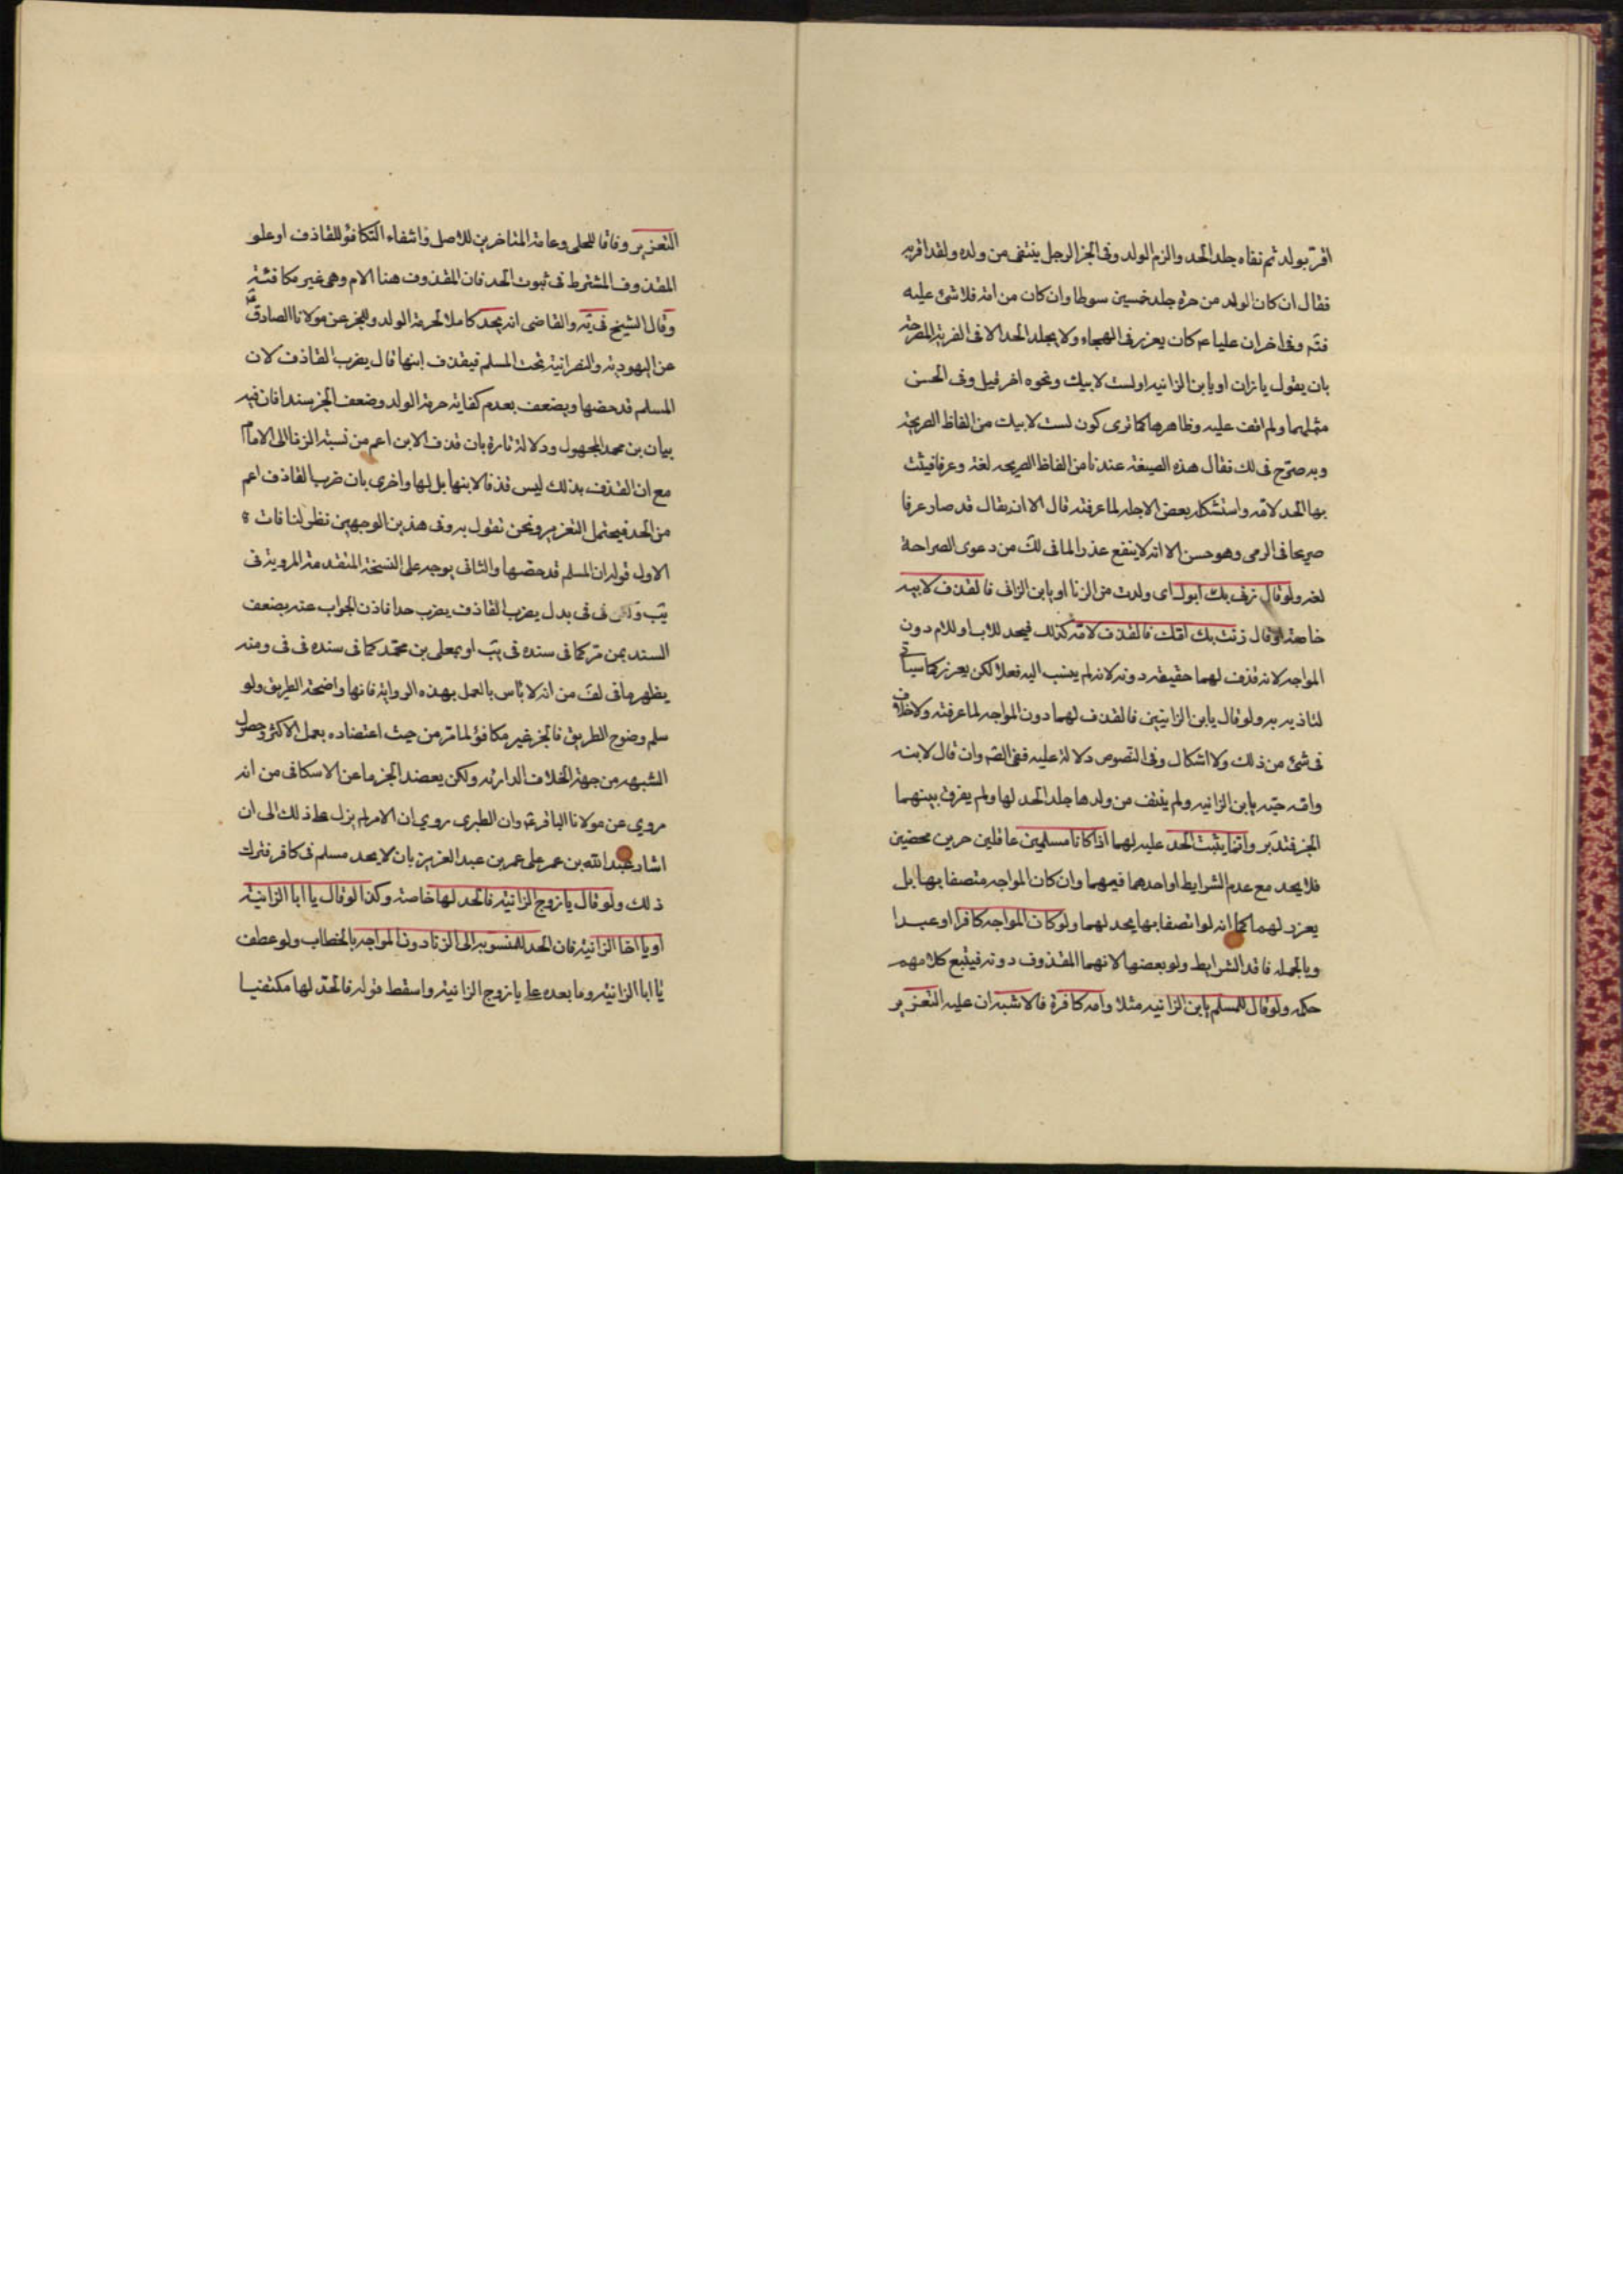 اقر بولد ثم نفاه جلد الحد والزم الولد وفى الخبر الرجل ينتفى من ولده ولقد اقر به
فقال ان كان الولد من حرة جلد خمسين سوطا وان كان من امة فلا شئ عليه
فتم وفى اخر ان عليا ع كان يعزر فى الهجاء ولا يجلد الحد الا فى الفرية المصرحة
بان يقول يا زان او يا بن الزانيه او لست لابيك ونحوه اخر قيل وفى الحسن
مثلهما ولم اقف عليه وظاهرها كما ترى كون لست لابيك من الفاظ الصريحة
وبه صرّح فى لك فقال هذه الصيغة عندنا من الفاظ الصريحه لغة وعرفا فيثبت
بها الحد لامه واستشكله بعض الاجله لما عرفته قال الا ان يقال قد صار عرفا
صريحا فى الرمى وهو حسن الا انه لا ينفع عذرا لما فى لك من دعوى الصراحة
لغه ولو قال زنى بك ابوك اى ولدت من الزنا او يا بن الزانى فالقذف لابيه
خاصة او قال زنت بك امك فالقذف لامه كذلك فيحد للاب او للام دون
المواجه لانه قذف لهما حقيقه دونه لانه لم ينسب اليه فعلا لكن يعزر كما سياتى
لتاذيه به ولو قال يا بن الزانيين فالقذف لهما دون المواجه لما عرفته ولا خلاف
فى شئ من ذلك ولا اشكال وفى النصوص دلالة عليه ففى الصم وان قال لابنه
وامه حيّه يا بن الزانيه ولم ينتف من ولدها جلد الحد لها ولم يفرق بينهما
الخبر فتدبّر وانما يثبت الحد عليه لهما اذا كانا مسلمين عاقلين حرين محصنين
فلا يحد مع عدم الشرايط او احدهما فيهما وان كان المواجه متصفا بها بل
يعزر لهما كما انه لو اتصفا بها يحد لهما ولو كان المواجه كافرا او عبدا
وبالجمله فاقد الشرايط ولو بعضها لانهما المقذوف دونه فيتبع كلا منهم
حكمه ولو قال للمسلم يا بن الزانيه مثلا وامه كافرة فالاشبه ان عليه التعزير
التعزير وفاقا للحلى وعامة المتاخرين للاصل وانتفاء التكافؤ للقاذف او علو
المقذوف المشترط فى ثبوت الحد فان المقذوف هنا الام وهى غير مكافئة
وقال الشيخ فى يه والقاضى انه يحد كاملا لحرمة الولد وللخبر عن مولانا الصادق
عن اليهودية والنصرانية تحت المسلم فيقذف ابنها قال يضرب القاذف لان
المسلم قد حصنها ويضعف بعدم كفاية حرمة الولد وضعف الخبر سندا فان فيه
بيان بن محمد المجهول ودلالة تارة بان قذف الابن اعم من نسبة الزنا الى الام
مع ان القذف بذلك ليس قذفا لابنها بل لها واخرى بان ضرب القاذف اعم
من الحد فيحتمل التعزير ونحن نقول به وفى هذين الوجهين نظر لمنافات
الاول قوله ان المسلم قد حصنها والثانى يوجه على النسخة المتقدمة المروية فى
يب و فى فى بدل يضرب القاذف يضرب حدا فاذن الجواب عنه بضعف
السند بمن مر كما فى سنده فى يب او بمعلى بن محمد كما فى سنده فى فى ومنه
يظهر ما فى لف من انه لا باس بالعمل بهذه الرواية فانها واضحة الطريق ولو
سلم وضوح الطريق فالخبر غير مكافؤ لما مر من حيث اعتضاده بعمل الاكثر وحصول
الشبهه من جهة الخلاف الدارئه ولكن يعضد الخبر ما عن الاسكافى من انه
مروى عن مولانا الباقر ع وان الطبرى روى ان الامر لم يزل على ذلك الى ان
اشار عبد الله بن عمر على عمر بن عبد العزيز بان لا يحد مسلم فى كافر فترك
ذلك ولو قال يا زوج الزانية فالحد لها خاصة وكذا لو قال يا ابا الزانية
او يا اخا الزانية فان الحد للمنسوبه الى الزنا دون المواجه بالخطاب ولو عطف
يا ابا الزانية وما بعده على يا زوج الزانية واسقط قوله فالحد لها مكتفيا